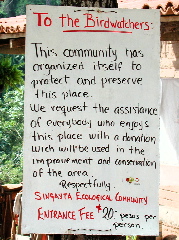 To the Birdwatchers:
This community has
organized itself to
protect and preserve
this place.
We request the assistance
of everybody who enjoys
this place with a donation
wich will be used in the
improvement and conservation
of the area.
Respectfully.
SINGAYTA ECOLOGICAL COMMUNITY
ENTRANCE FEE $20. pesos per
person.